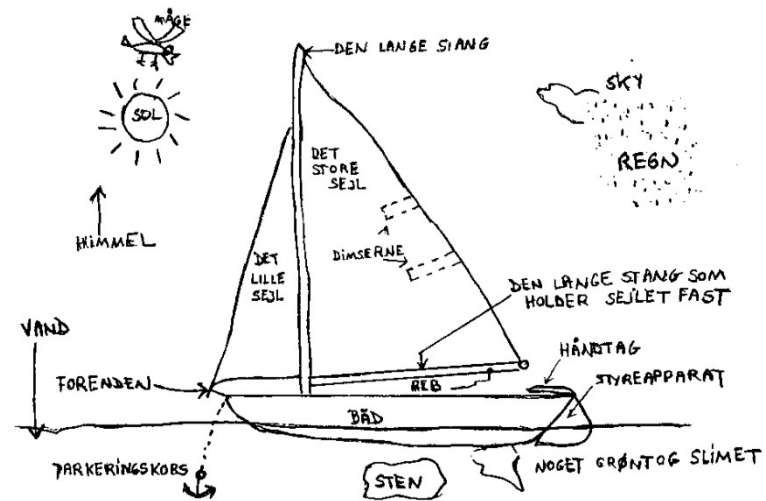 MÅGE
DEN LANGE STANG
SOL
SKY
REGN
DET
STORE
SEJL
HIMMEL
DIMSERNE
DET
LILLE
SEJL
DEN LANGE STANG SOM
HOLDER SEJLET FAST
VAND
HÅNDTAG
FORENDEN
REB
STYREAPPARAT
BÅD
PARKERINGSKOBS
STEN
NOGET GRØNT OG SLIMET